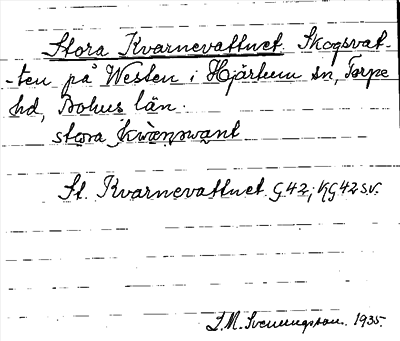 Stora Kvarnevattnet. Skogsvat-
-ten på Westen i Hjärtum sn, Torpe
hd, Bohus län.
stora
St. Kvarnevattnet. G42; KG42sv.
S.M. Svenungsson. 1935.